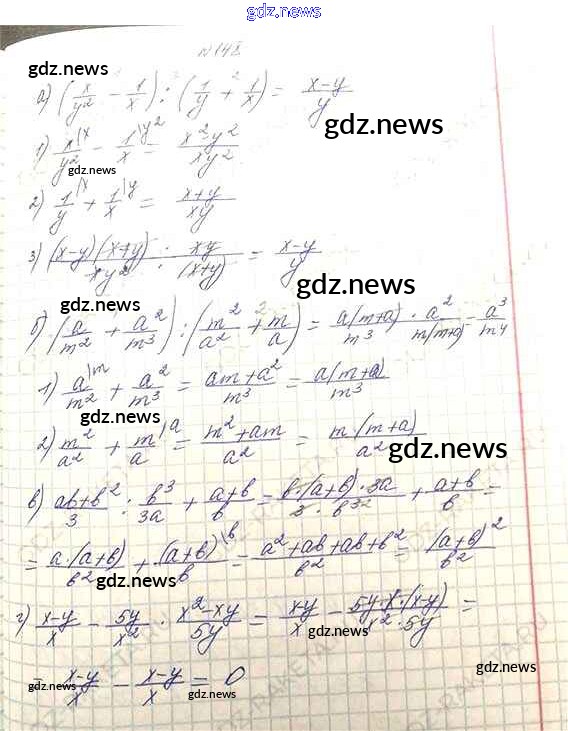 gdz.news
N 148
gdz.news
а) (x/y² - 1/x) : (1/y + 1/x) = x-y/y
gdz.news
1) x\x/y² - 1\y²/x = x²-y²/xy²
gdz.news
2) 1\x/y + 1\y/x = x+y/xy
gdz.news
3) (x-y)(x+y)/xy² · xy/(x+y) = x-y/y
gdz.news
б) (a/m² + a²/m³) : (m²/a² + m/a) = a(m+a)/m³ · a²/m(m+a) = a³/m⁴
gdz.news
1) a\m/m² + a²/m³ = am+a²/m³ = a(m+a)/m³
gdz.news
2) m²/a² + m\a/a = m²+am/a² = m·(m+a)/a²
gdz.news
в) ab+b²/3 : b³/3a + a+b/b = b·(a+b)·3a/3·b³² + a+b/b =
= a·(a+b)/b² + (a+b)\b/b = a²+ab+ab+b²/b² = (a+b)²/b²
gdz.news
г) x-y/x - 5y/x² · x²-xy/5y = x-y/x - 5y·x·(x-y)/x²·5y =
gdz.news
gdz.news
= x-y/x - x-y/x = 0
gdz.news
gdz.news